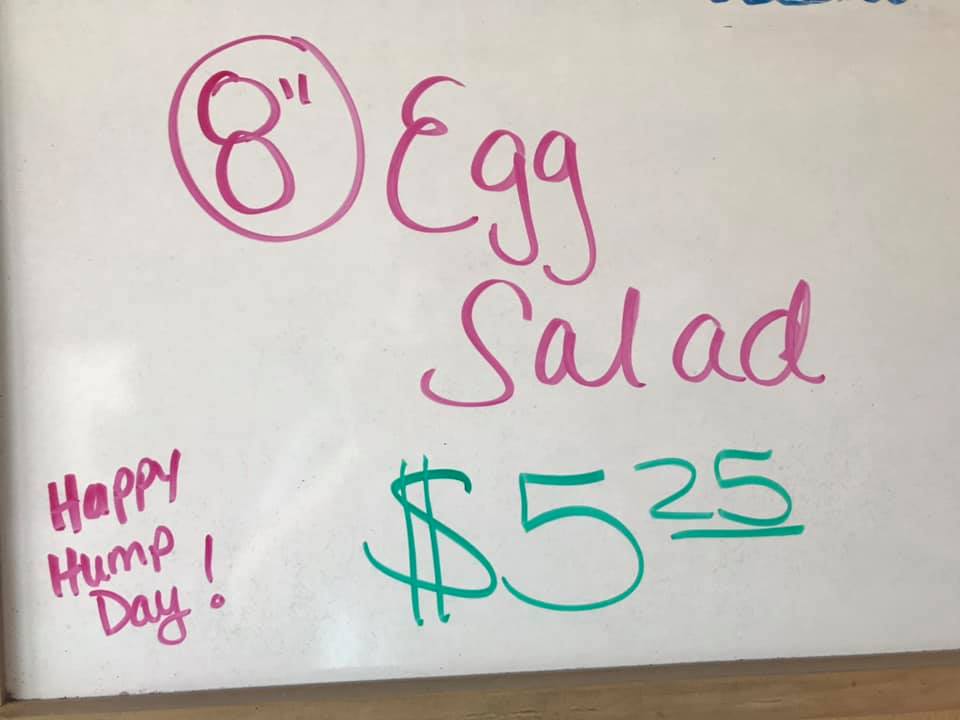 8" Egg
Salad
$5 25
Happy
Hump
Day!